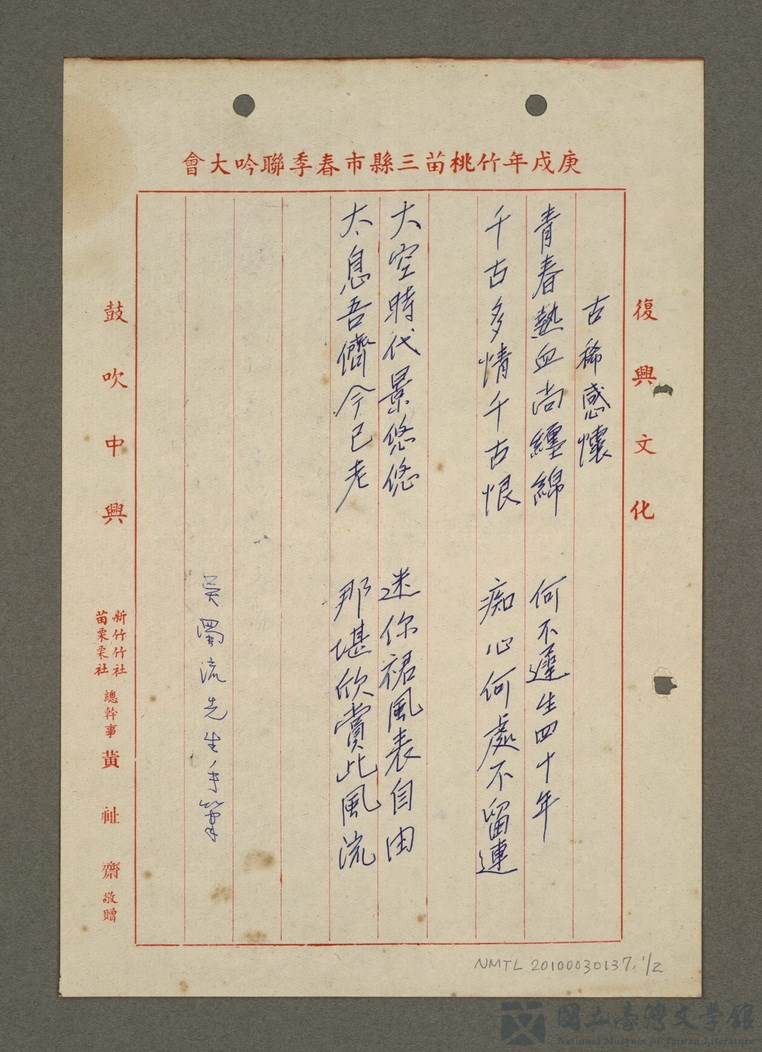 庚戌年竹桃苗三縣市春季聯吟大會
復興文化
古稀感懷
青春熱血尚纏綿　何不遲生四十年
千古多情千古恨　痴心何處不留連
太空時代景悠悠　迷你裙風表自由
太息吾儕今已老　那堪欣賞此風流
吳濁流先生手筆
鼓吹中興
新竹竹社
苗栗栗社
總幹事 黃祉齋 敬贈
NMTL 20100030137, 1/2
國立臺灣文學館
National Museum of Taiwan Literature